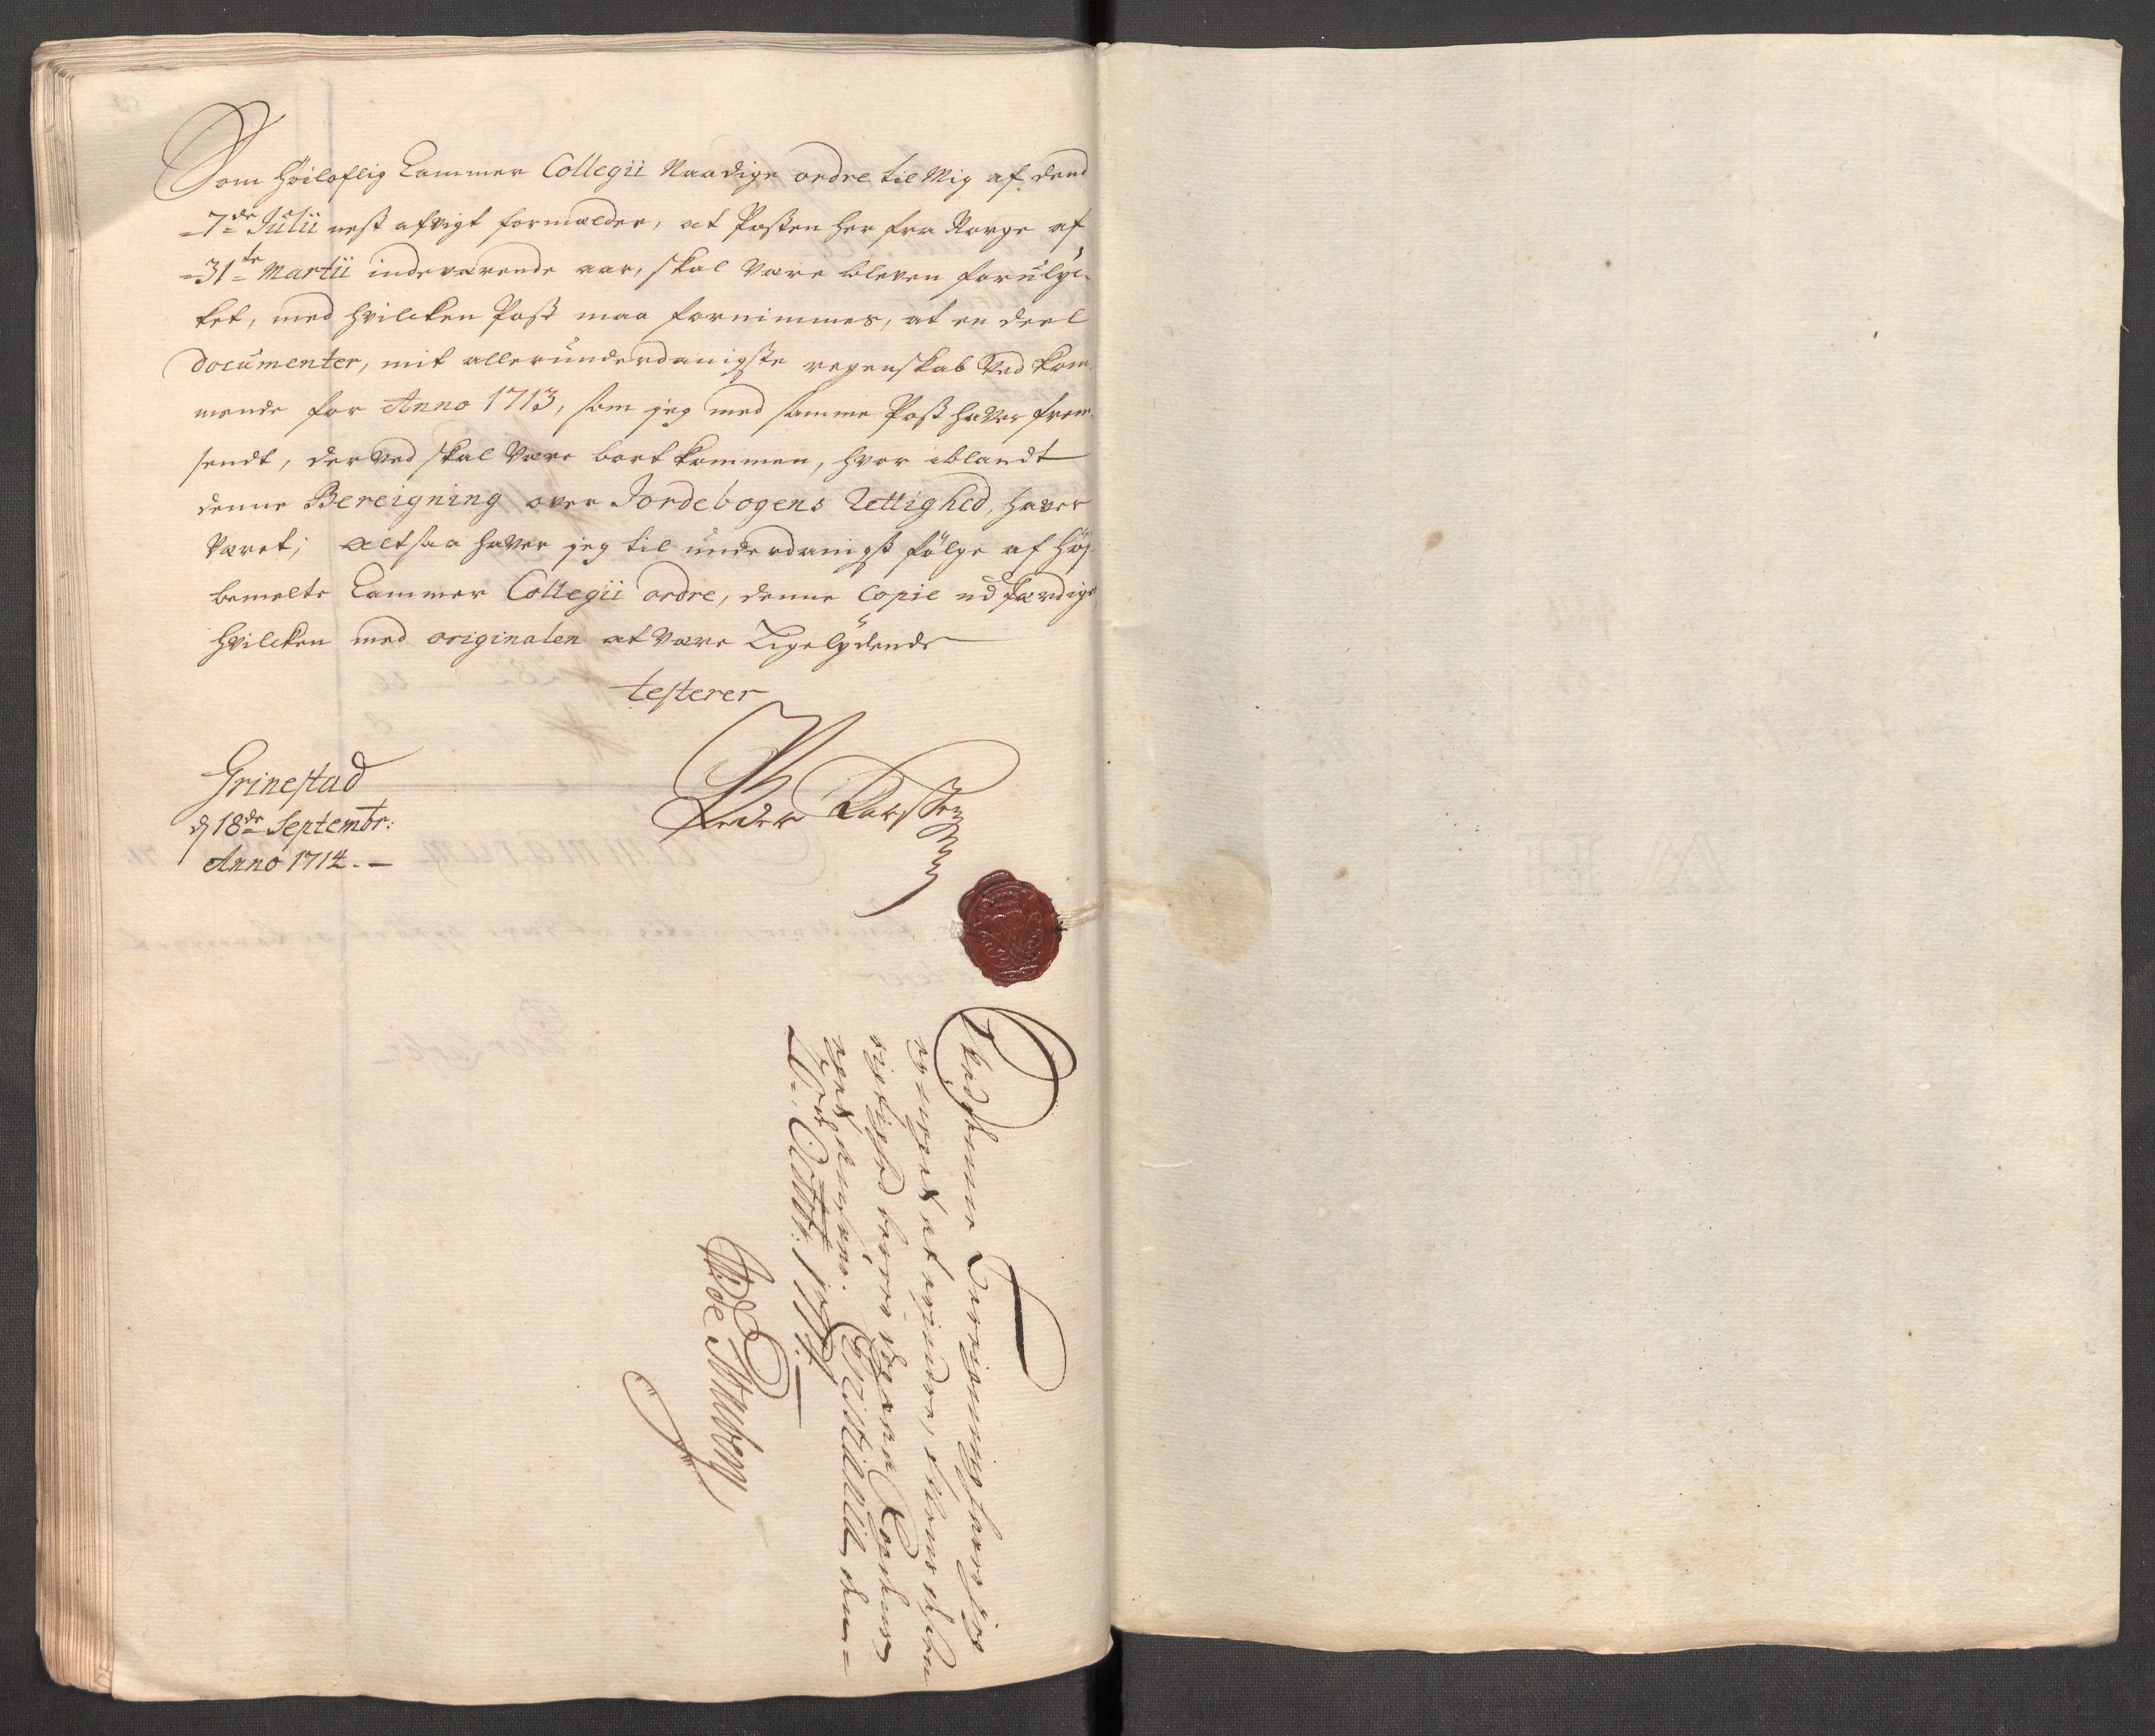 Som höiloflig Cammer Collegii Naadige ordre til Mig af dend
7de Julii nest afvigt formælder, at Posten her fra Norge af
31te Martii indeværende aar, skal være bleven forulyc-
ket, med hvilcken Post maa fornimmes, at en deel
documenter, mit allerunderdanigste regenskab ved kom-
mende for Anno 1713, som jeg med samme Post haver frem-
sendt, derved skal være bort kommen, hvor iblandt
denne Bereigning over Jordebogens Rettighed, haver
været; altsaa haver jeg til underdanigst følge af høj-
bemelte Cammer Collegii ordre, denne Copie udfærdiget
hvilcken med originalen at være Ligelydende
testerer
Grinestad
d 18de Septembr:
Anno 1714.
Peder Larssen
denne Bereigning haver jeg
intet at erindre,
rigtighed
Christiania den
Octobr: 1714.